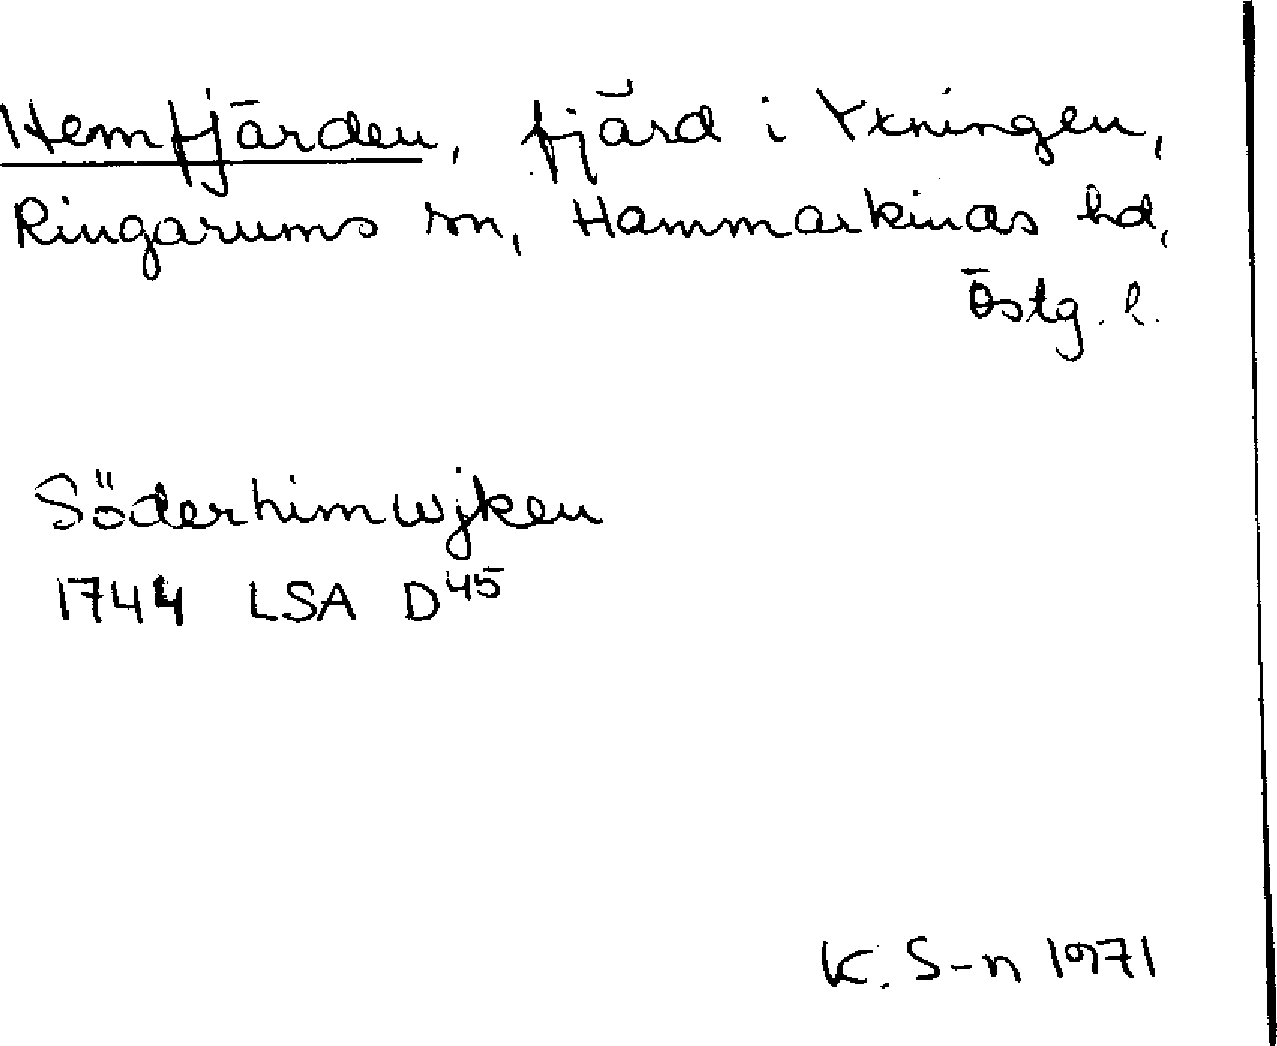 Hemfjärden, fjärd i Yxningen,
Ringarums sn, Hammarkinds hd,
Östg. l.
Söderhimwjken
1744 LSA D45
K. S-n 1971